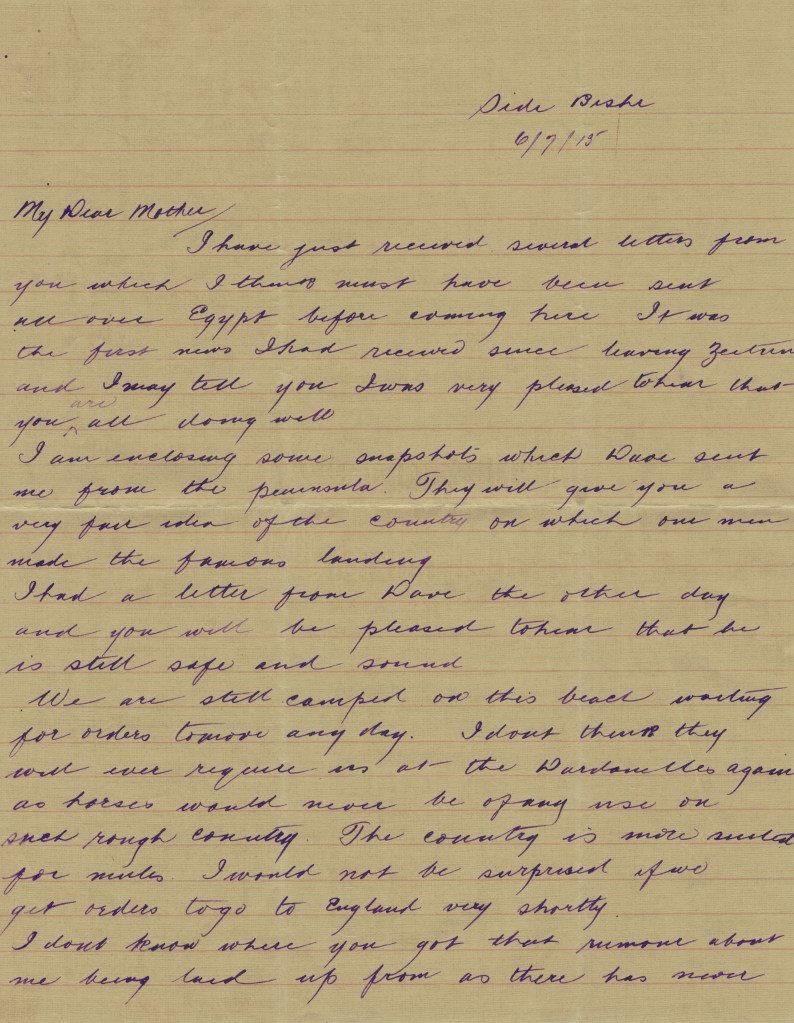 Side Beshr
6/7/15
My Dear Mother/
I have just received several letters from
you which I think must have been sent
all over Egypt before coming here It was
the first news I had received since leaving Zeitun
and I may tell you I was very pleased to hear that
you are all doing well
I am enclosing some snapshots which Dave sent
me from the peninsula. They will give you a
very fair idea of the country on which our men
made the famous landing
I had a letter from Dave the other day
and you will be pleased to hear that he
is still safe and sound
We are still camped on this beach waiting
for orders to move any day. I dont think they
will ever require us at the Dardanelles again
as horses would never be of any use on
such rough country. The country is more suited
for mules I would not be surprised if we
get orders to go to England very shortly.
I dont know where you got that rumour about
me being laid up from as there has never